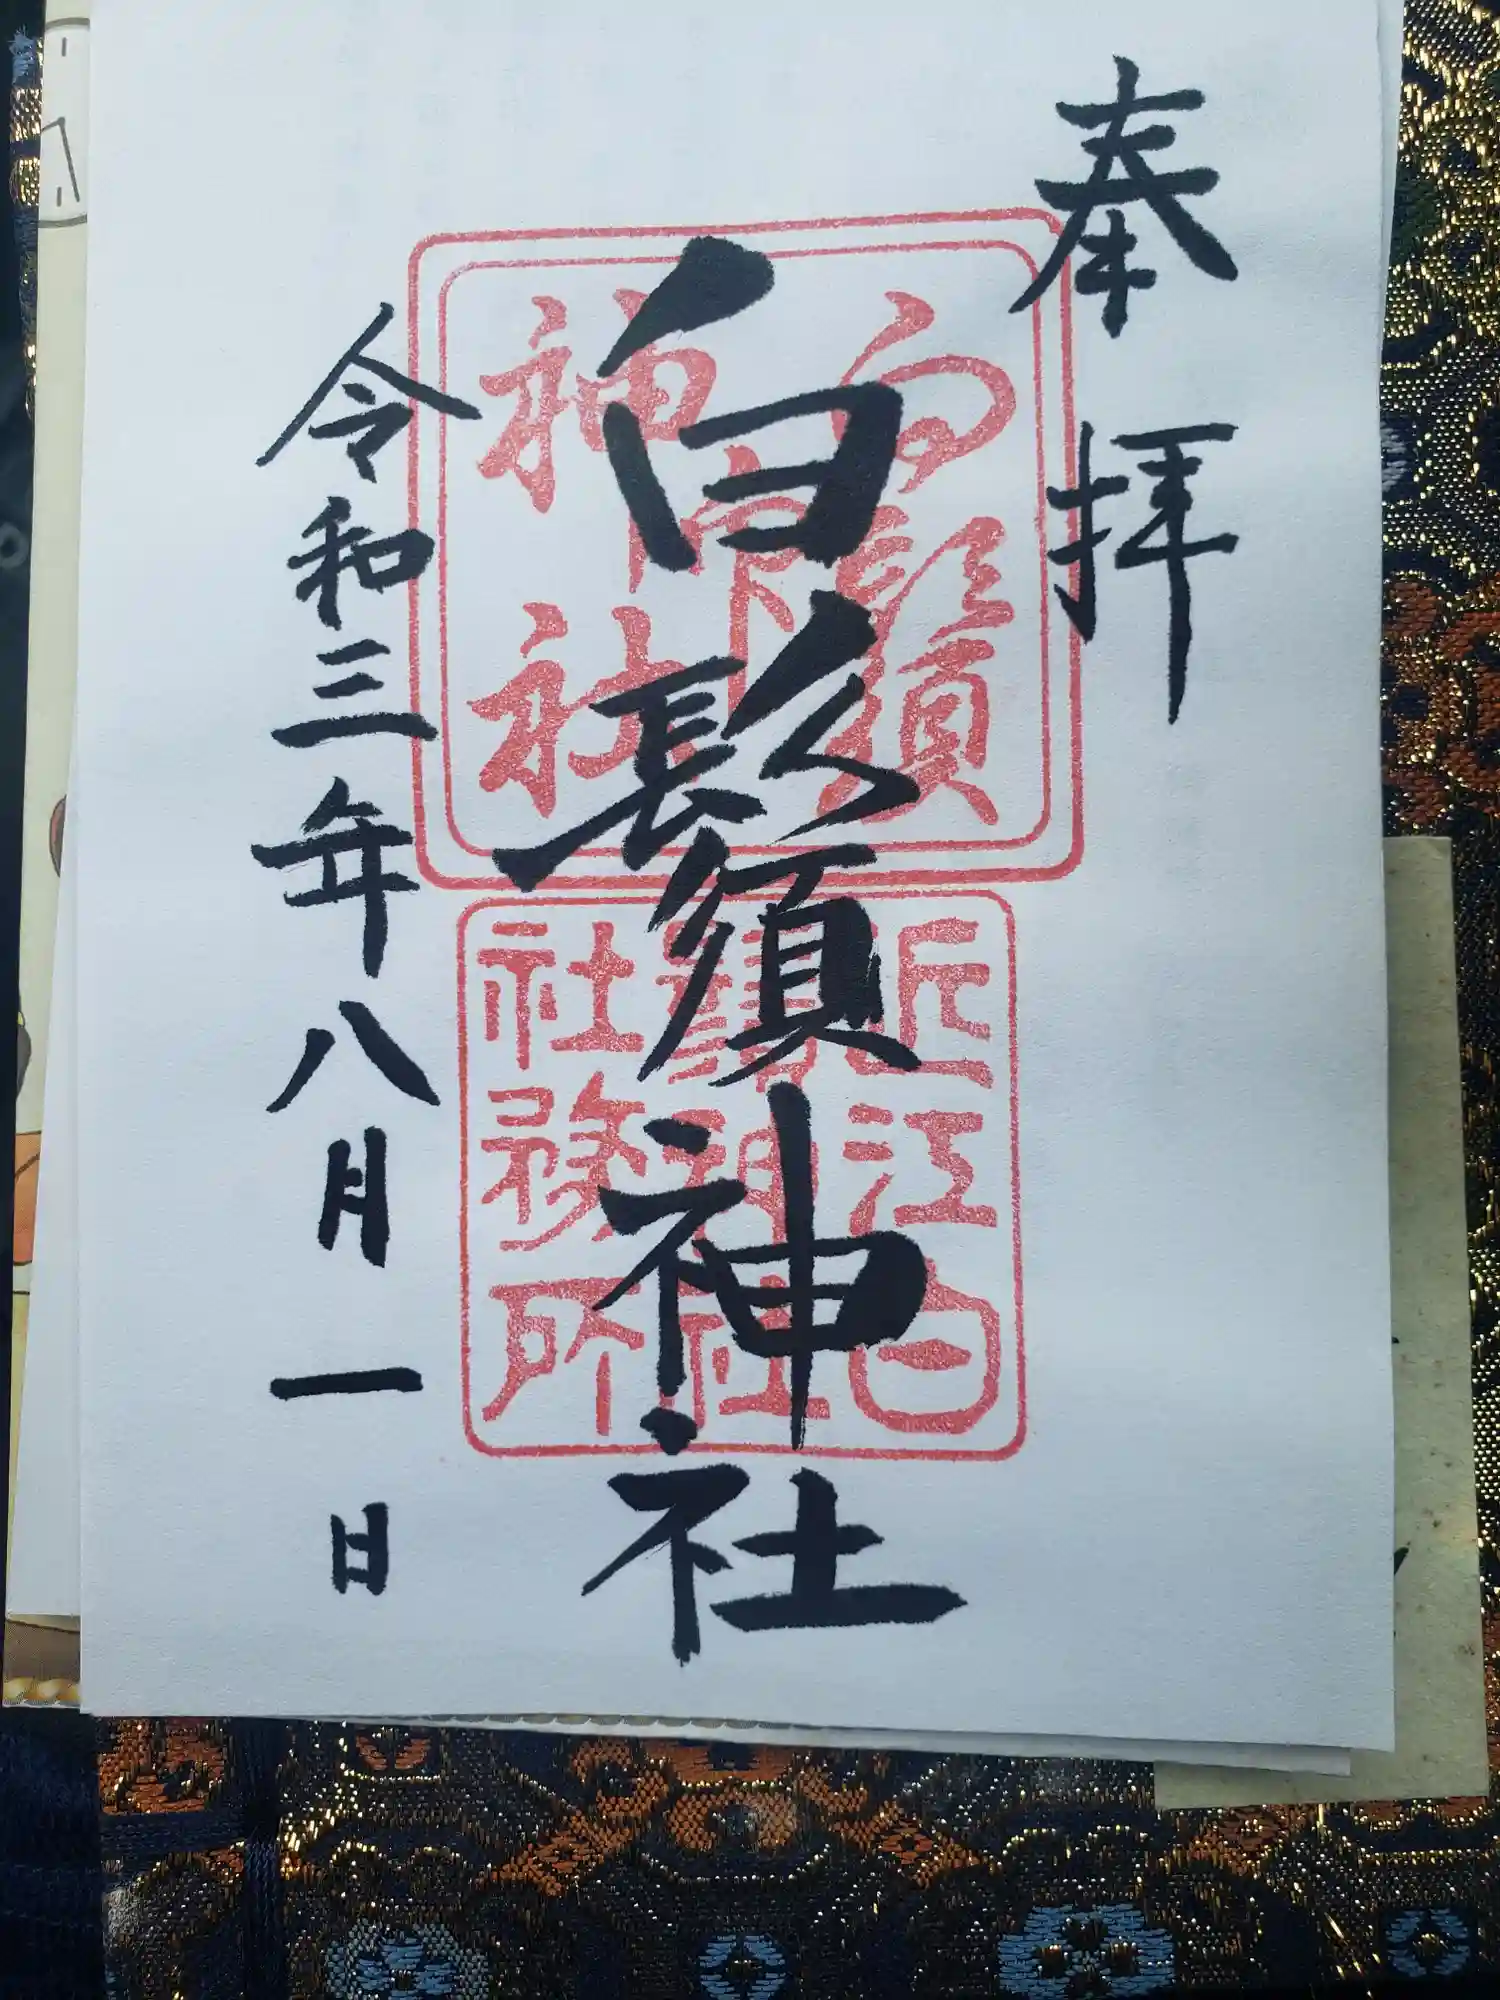 奉拝
白鬚神社
令和三年八月一日
白鬚
神社
近江白
鬚神社
社務所